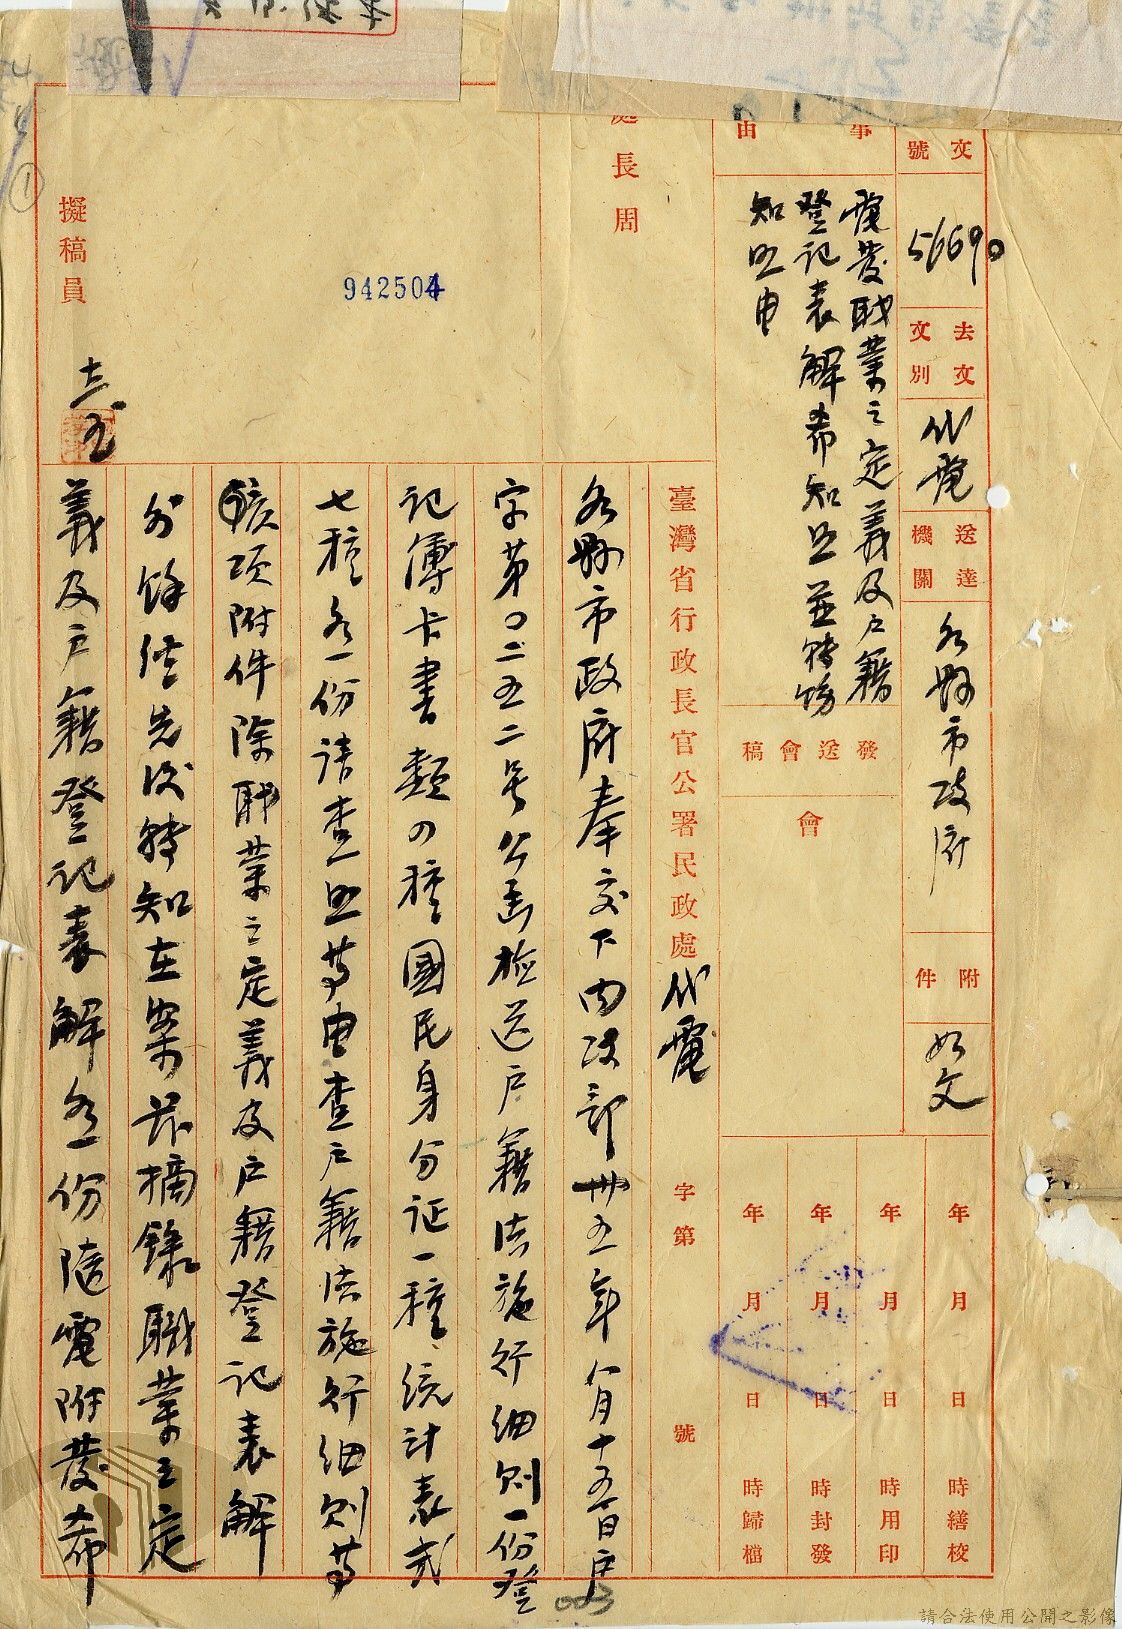 文號
56690
去文文別
代電
送達機關
各縣市政府
附件
如文
年 月 日 時繕校
年 月 日 時用印
年 月 日 時封發
年 月 日 時歸檔
事由
電發職業之定義及戶籍
登記表解希知照並轉飭
知照由
發送會稿
會
處長周
942504
擬稿員
臺灣省行政長官公署民政處代電
字第 號
各縣市政府奉交下內政部卅五年八月十五日戶
字第〇二五二号公函檢送戶籍法施行細則一份登
記簿卡書類四種國民身分証一種統計表式
七種各一份請查照等由查戶籍法施行細則等
該項附件除職業之定義及戶籍登記表解
外餘經先後轉知在案茲摘錄職業之定
義及戶籍登記表解各一份隨電附發希
003
①
請合法使用公開之影像